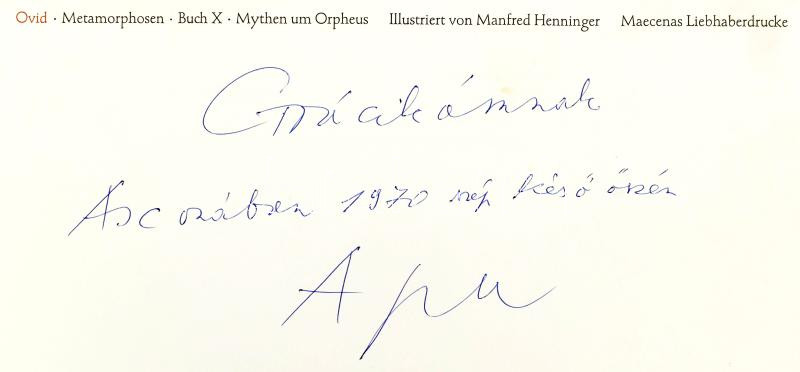 Ovid · Metamorphosen · Buch X · Mythen um Orpheus Illustriert von Manfred Henninger Maecenas Liebhaberdrucke
Grácikámnak
1970 szép késő őszén
Apu